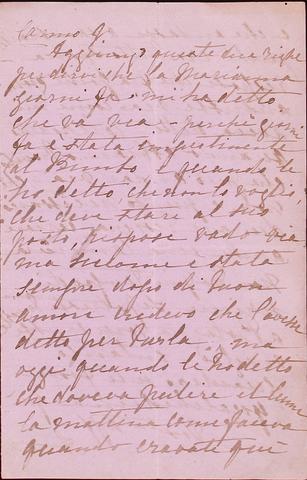 Carmo G.
Aggiungo queste due righe
per dirvi che la Marianna
giorni fa mi ha detto
che va via - perchè giorni
fa è stata impertinente
al Bimbo e quando le
ho detto, che non lo voglio,
che deve stare al suo
posto, rispose vado via
ma siccome è stata
sempre dopo di buon
amor credevo che l'avesse
detto per burla, ma
oggi quando le ho detto
che doveva pulire il lume
la mattina come faceva
quando eravate qui